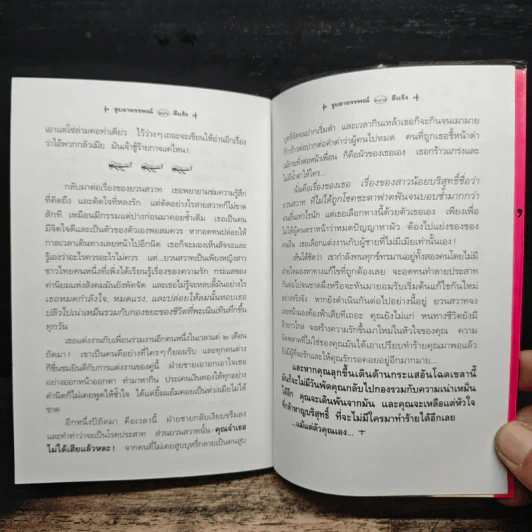 ธูปตายธรรพณ์ สีแจ้ง
เอาแต่โซ่ล่ามคอท่าเดียว ไว้ว่างๆ เถอะจะเขียนให้อ่านอีกเรื่อง
ว่าไอ้พวกกลัวเมีย มันเจ้าชู้ร้ายกาจแค่ไหน!
กลับมาต่อเรื่องของยวนสวาท เธอพยายามข่มความรู้สึก
ที่คิดถึง และตัดใจที่หลงรัก แต่ตัดอย่างไรสายสวาทก็ไม่ขาด
สักที เหมือนมีกรรมแต่ปางก่อนมาคอยซ้ำเติม เธอเป็นคน
มีจิตใจดีและเป็นตัวของตัวเองพอสมควร หากอดทนปล่อยให้
กาลเวลาเดินทางเลยหน้าไปอีกนิด เธอก็จะมองเห็นสัจจะและ
รู้เองว่าอะไรควรอะไรไม่ควร แต่...ยวนสวาทเป็นเพียงหญิงสาว
ชาวไทยคนหนึ่งที่เพิ่งได้เรียนรู้เรื่องของความรัก กระแสของ
ค่านิยมแห่งสังคมมันยังพัดจัด และเธอไม่รู้จะหลบลี้มันอย่างไร
เธอหมดกำลังใจ, หมดแรง, และปล่อยให้ลมนั้นหอบเธอ
ปลิวไปเน่าเหม็นรวมกับกองขยะของชีวิตที่พะเนินเทินทึกขึ้น
ทุกวัน
เธอแต่งงานกับเพื่อนร่วมงานอีกคนหนึ่งในเวลาแค่ ๒ เดือน
ถัดมา! เขาเป็นคนดีอย่างที่ใครๆ ก็ยอมรับ และทุกคนต่าง
ก็ชื่นชมยินดีกับการแต่งงานของคู่นี้ ฝ่ายชายเอาอกเอาใจเธอ
อย่างออกหน้าออกตา ทำมาหากิน ประเคนเงินทองให้ทุกอย่าง
คำนิดก็ไม่เคยพูดให้ช้ำใจ ได้แต่ยิ้มแย้มคอยเป็นห่วงเมียไม่ได้
ขาด
อีกหนึ่งปีถัดมา คือเวลานี้ ฝ่ายชายกลับเงียบขรึมลง
และทำท่าว่าจะเป็นโรคประสาท ส่วนยวนสวาทนั้น--คุณจำเธอ
ไม่ได้เสียแล้วหละ! จากคนที่ไม่เคยสูบบุหรี่กลายเป็นคนสูบ
ธูปตายธรรพณ์ สีแจ้ง
บุหรี่จัดจนปากเริ่มดำ และเวลากินเหล้าเธอก็จะกินจนเมามาย
ก้าวร้าวต่อปากต่อคำด่าว่าผู้คนไปหมด คนที่ถูกเธอชี้หน้าด่า
แม้กระทั่งต่อหน้าเพื่อน ก็คือผัวของเธอเอง เธอกร้าวแกร่งและ
ไม่น้ำตาให้ใคร...
มันคือเรื่องของเธอ เรื่องของสาวน้อยบริสุทธิ์ชื่อว่า
ยวนสวาท ที่ไม่ได้ถูกโชคชะตาฟาดฟันจนบอบช้ำมากกว่า
คนอื่นเท่าไรนัก แต่เธอเลือกทางนี้ด้วยตัวเธอเอง เพียงเพื่อ
ไม่ให้ผู้คนตราหน้าว่าหมดปัญญาหาผัว ต้องไปแย่งของของ
คนอื่น เธอเลือกแต่งงานกับผู้ชายที่ไม่มีเมียเท่านั้นเอง!
เห็นใช่มั้ยว่า เขากำลังทนทุกข์ทรมานอยู่ทั้งสองคนโดยไม่มี
ฝ่ายใดมองหาทางแก้ไขที่ถูกต้องเลย จะอดทนทำลายประสาท
กันต่อไปจนขาดผึงหรือจะหันมายอมรับเริ่มต้นแก้ไขกันใหม่
อย่างจริงจัง หากยังดำเนินกันต่อไปอย่างนี้อยู่ ยวนสวาทจง
เลยหน้ามองท้องฟ้าเสียทีเถอะ คุณยังไม่แก่ หนทางชีวิตยังมี
อีกยาวไกล จงสร้างความรักขึ้นมาใหม่ในหัวใจของคุณ ความ
ผิดพลาดที่ไม่ใช่ของคุณมันได้เอาเปรียบทำร้ายคุณมาพอแล้ว
ยังมีผู้ที่จะรักและให้คุณรักรอคอยอยู่อีกมากมาย...
และหากคุณลุกขึ้นเดินต้านกระแสอันโฉดเขลานี้
มันก็จะไม่มีวันพัดคุณกลับไปกองรวมกับความเน่าเหม็น
ได้อีก คุณจะเดินพ้นจากมัน และคุณจะเหลือแต่หัวใจ
ที่กล้าหาญบริสุทธิ์ ที่จะไม่มีใครมาทำร้ายได้อีกเลย
...แม้แต่ตัวคุณเอง...